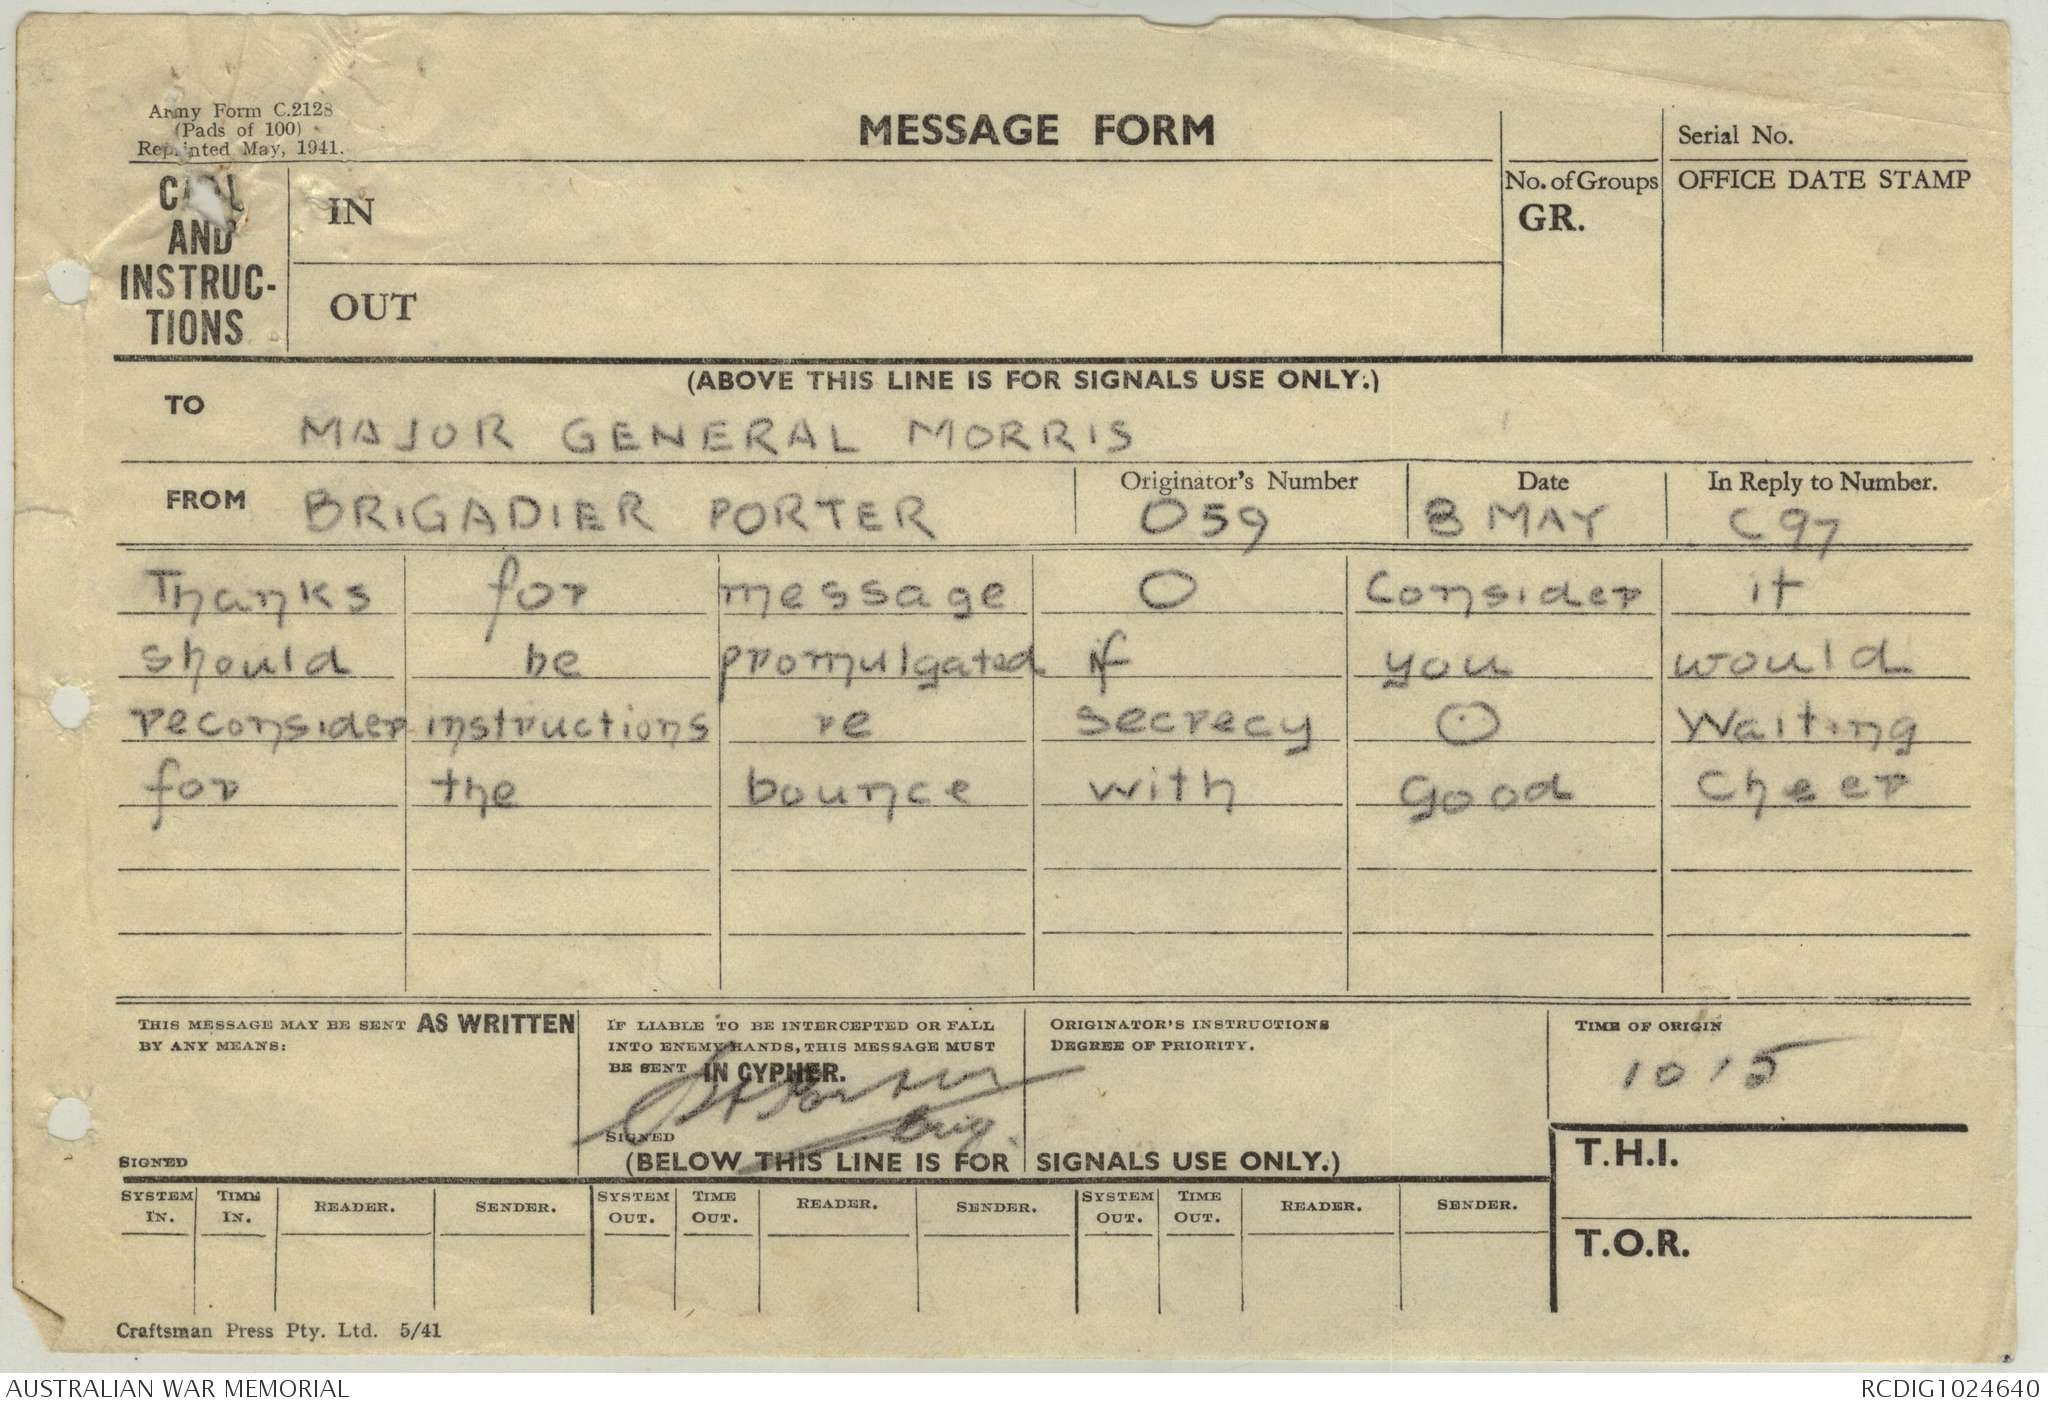 Army Form C.2128
(Pads of 100)
Reprinted May, 1941.
MESSAGE FORM
Serial No.
CALL
AND
INSTRUC-
TIONS
IN
OUT
No. of Groups
GR.
OFFICE DATE STAMP
(ABOVE THIS LINE IS FOR SIGNALS USE ONLY.)
TO MAJOR GENERAL MORRIS
FROM BRIGADIER PORTER
Originator's Number
O59
Date
8 MAY
In Reply to Number.
C 97
Thanks for message O Consider it
should be promulgated if you would
reconsider instructions re secrecy O Waiting
for the bounce with good cheer
THIS MESSAGE MAY BE SENT AS WRITTEN
BY ANY MEANS:
SIGNED
IF LIABLE TO BE INTERCEPTED OR FALL
INTO ENEMY HANDS, THIS MESSAGE MUST
BE SENT IN CYPHER.
Porter
SIGNED Brig.
ORIGINATOR'S INSTRUCTIONS
DEGREE OF PRIORITY.
TIME OF ORIGIN
1015
(BELOW THIS LINE IS FOR SIGNALS USE ONLY.)
T.H.I.
T.O.R.
SYSTEM IN. TIME IN. READER. SENDER. SYSTEM OUT. TIME OUT. READER. SENDER. SYSTEM OUT. TIME OUT. READER. SENDER.
Craftsman Press Pty. Ltd. 5/41
AUSTRALIAN WAR MEMORIAL
RCDIG1024640